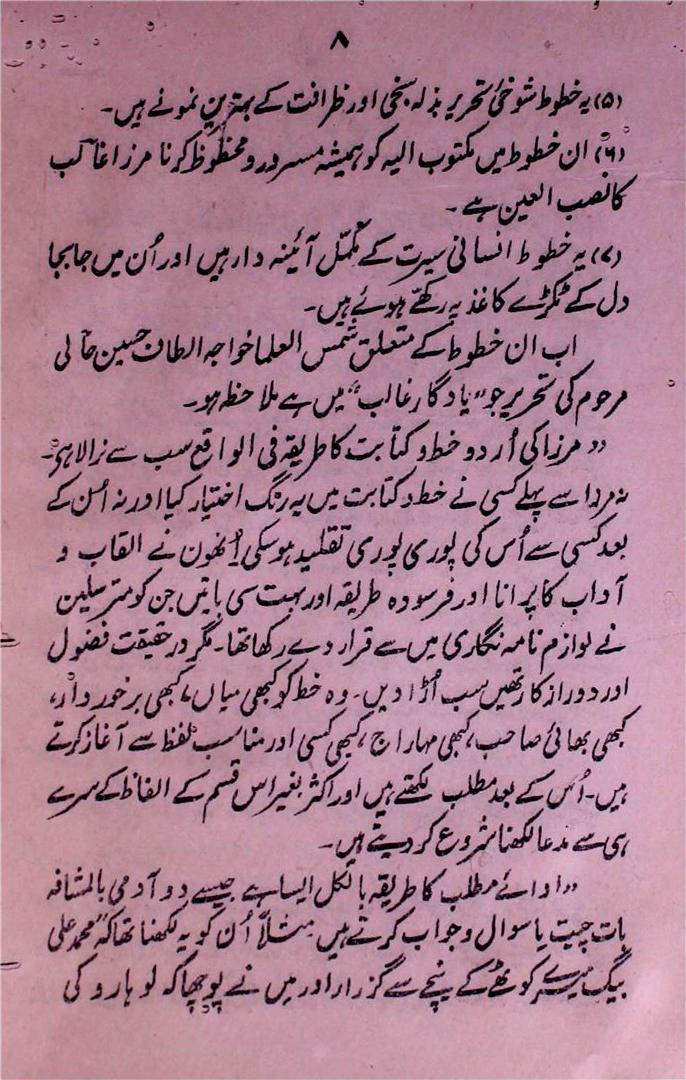 ۸
(۵) یہ خطوط شوخیٔ تحریر بذلہ سخی اور ظرافت کے بہترین نمونے ہیں۔
(۶) ان خطوط میں مکتوب الیہ کو ہمیشہ مسرور و محظوظ کرنا مرزا غالب
کا نصب العین ہے۔
(۷) یہ خطوط انسانی سیرت کے مکمّل آئینہ دار ہیں اور اُن میں جا بجا
دل کے ٹکڑے کاغذ پہ رکھے ہوئے ہیں۔
اب ان خطوط کے متعلق شمس العلما خواجہ الطاف حسین حالی
مرحوم کی تحریر جو "یادگار غالب" میں ہے ملاحظہ ہو۔
"مرزا کی اُردو خط و کتابت کا طریقہ فی الواقع سب سے نرالا ہی۔
نہ مرزا سے پہلے کسی نے خط و کتابت میں یہ رنگ اختیار کیا اور نہ اُن کے
بعد کسی سے اُس کی پوری پوری تقلید ہو سکی اُنھون نے القاب و
آداب کا پرانا اور فرسودہ طریقہ اور بہت سی باتیں جن کو مترسلین
نے لوازم نامہ نگاری میں سے قرار دے رکھا تھا۔ مگر در حقیقت فضول
اور دور از کار تھیں سب اُڑا دیں۔ وہ خط کو کبھی میاں، کبھی برخوردار،
کبھی بھائی صاحب، کبھی مہاراج، کبھی کسی اور مناسب لفظ سے آغاز کرتے
ہیں۔ اُس کے بعد مطلب لکھتے ہیں اور اکثر بغیر اس قسم کے الفاظ کے سرے
ہی سے مدعا لکھنا شروع کر دیتے ہیں۔
"ادائے مطلب کا طریقہ بالکل ایسا ہے جیسے دو آدمی بالمشافہ
بات چیت یا سوال و جواب کرتے ہیں مثلاً اُن کو یہ لکھنا تھا کہ "محمد علی
بیگ میرے کوٹھے کے نیچے سے گزرا اور میں نے پوچھا کہ لوہارو کی